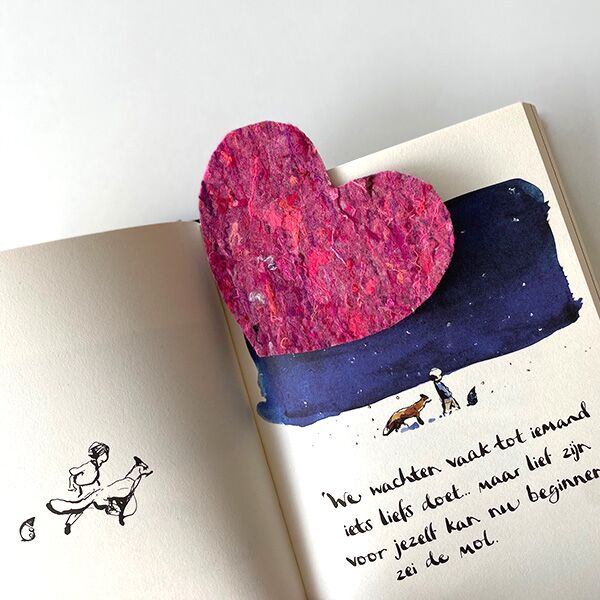 'We wachten vaak tot iemand
iets liefs doet... maar lief zijn
voor jezelf kan nu beginnen
zei de mol.